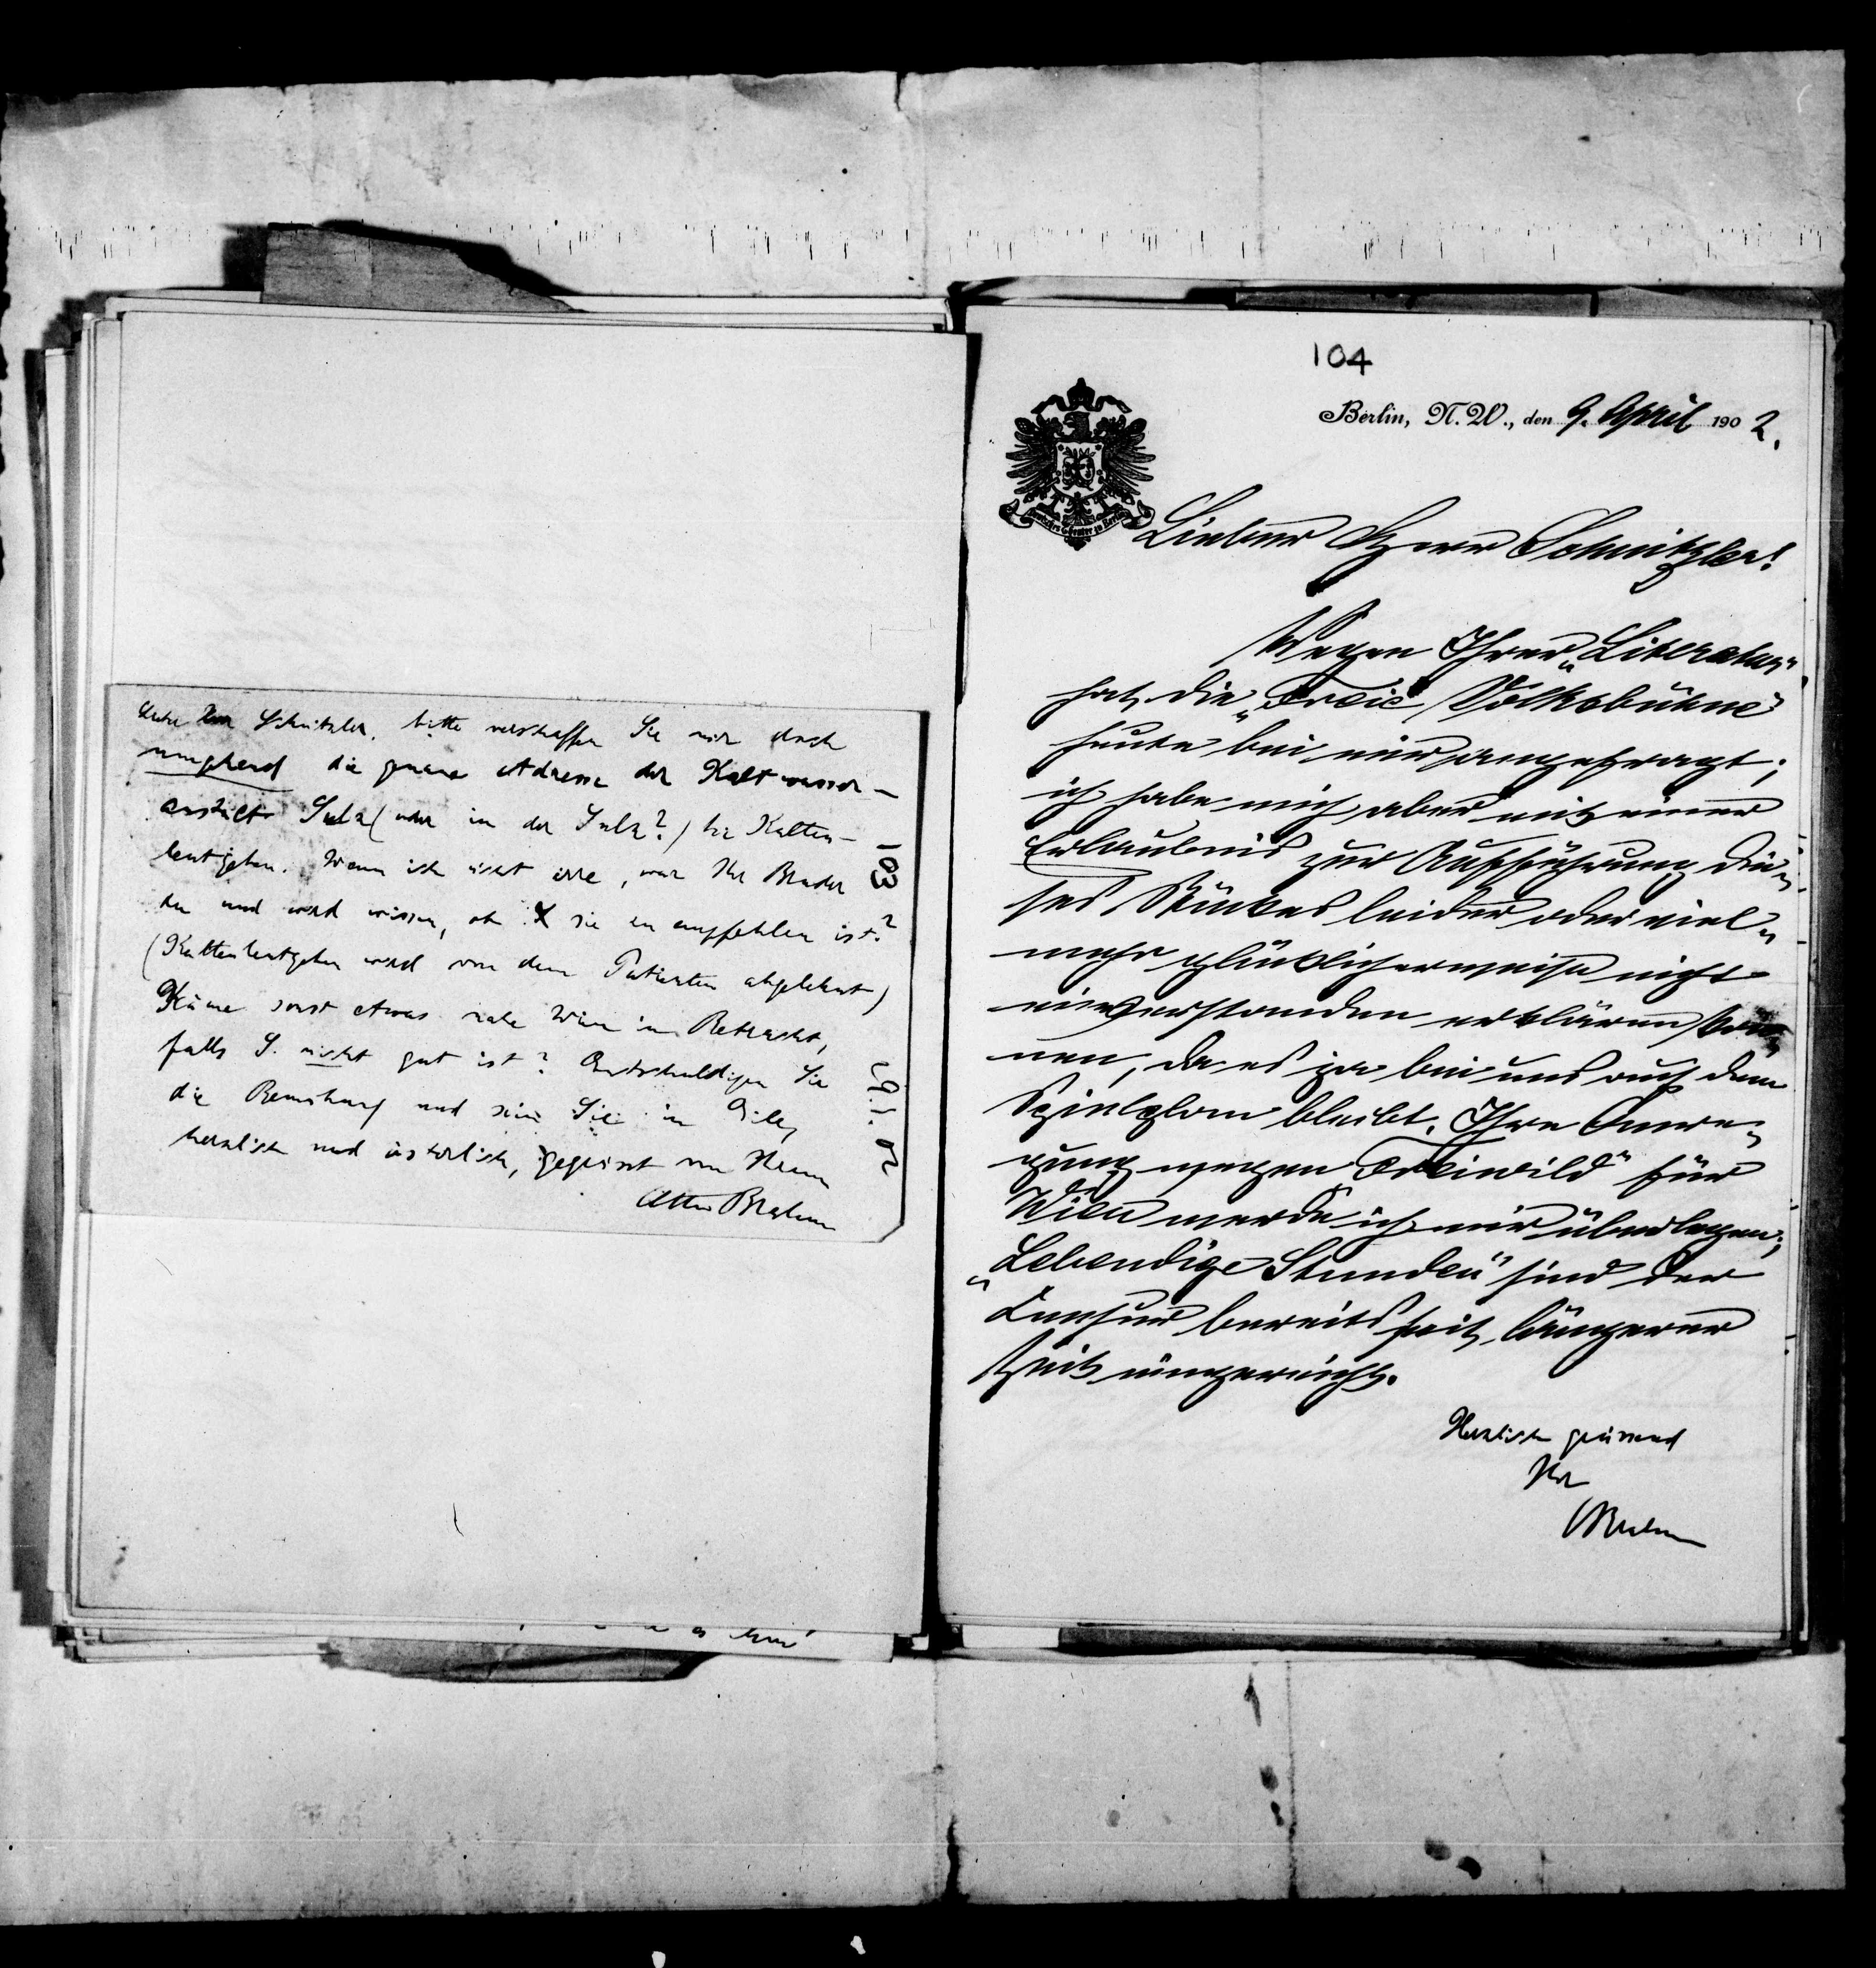 Lieber Herr Schnitzler, bitte verschaffen Sie mir doch
umgehend die genaue Adresse der Kaltwasser-
anstalt Sulz (oder in der Sulz?) bei Kalten-
leutgeben. Wenn ich nicht irre, war Ihr Bruder
da und wird wissen, ob sie zu empfehlen ist?
(Kaltenleutgeben wird von dem Patienten abgelehnt)
Käme sonst etwas nahe Wien in Betracht,
falls S. nicht gut ist? Entschuldigen Sie
die Bemühung und seien Sie in Eile,
herzlich und österlich, gegrüsst von Ihrem
Otto Brahm
103
29.1.02
104
Berlin, N. W., den 9. April 1902.
Deutsches Theater zu Berlin
Lieber Herr Schnitzler!
Wegen Ihrer „Literatur“
hat die „Freie Volksbühne“
heute bei mir angefragt;
ich habe mich aber mit einer
Erlaubnis zur Aufführung die-
ses Stückes leider oder viel-
mehr glücklicherweise nicht
einverstanden erklären kön-
nen, da es ja bei uns auf dem
Spielplan bleibt. Ihre Anre-
gung wegen „Freiwild“ für
Wien werde ich mir überlegen;
„Lebendige Stunden“ sind der
Zensur bereits seit längerer
Zeit eingereicht.
Herzlich grüssend
Ihr
OBrahm